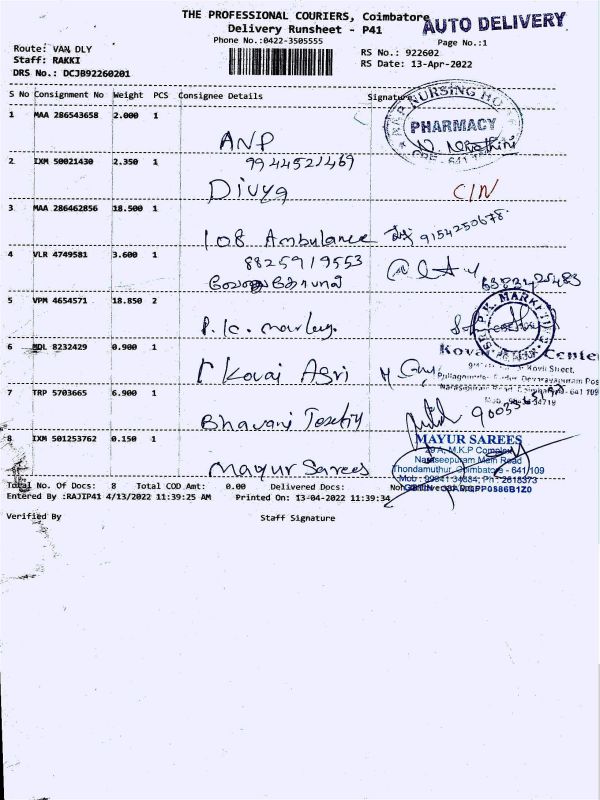 THE PROFESSIONAL COURIERS, Coimbatore
AUTO DELIVERY
Delivery Runsheet - P41
Phone No.:0422-3505555
Page No.:1
Route: VAN DLY
Staff: RAKKI
DRS No.: DCJB92260201
RS No.: 922602
RS Date: 13-Apr-2022
S No Consignment No Weight PCS Consignee Details Signature
1 MAA 286543658 2.000 1
NURSING HO
PHARMACY
ANP
9944521469
2 IXM 50021430 2.350 1
Divya
CIN
3 MAA 286462856 18.500 1
108 Ambulance
9154250678
4 VLR 4749581 3.600 1
8825919553
5 VPM 4654571 18.850 2
P.K.
SRI P.K. MARKETING
6 MDL 8232429 0.900 1
Kovai Agri
Kovai Centre
7 TRP 5703665 6.900 1
Bhavani
8 IXM 501253762 0.150 1
Mayur Sarees
MAYUR SAREES
29 A, M.K.P Complex
Naraseepuram Main Road
Thondamuthur, Coimbatore - 641 109
Mob : 99941 34884, Ph : 2618373
Total No. Of Docs: 8 Total COD Amt: 0.00 Delivered Docs:
Entered By :RAJIP41 4/13/2022 11:39:25 AM Printed On: 13-04-2022 11:39:34
Verified By Staff Signature